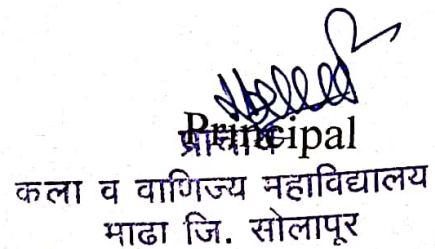 Principal
कला व वाणिज्य महाविद्यालय
माढा जि. सोलापूर